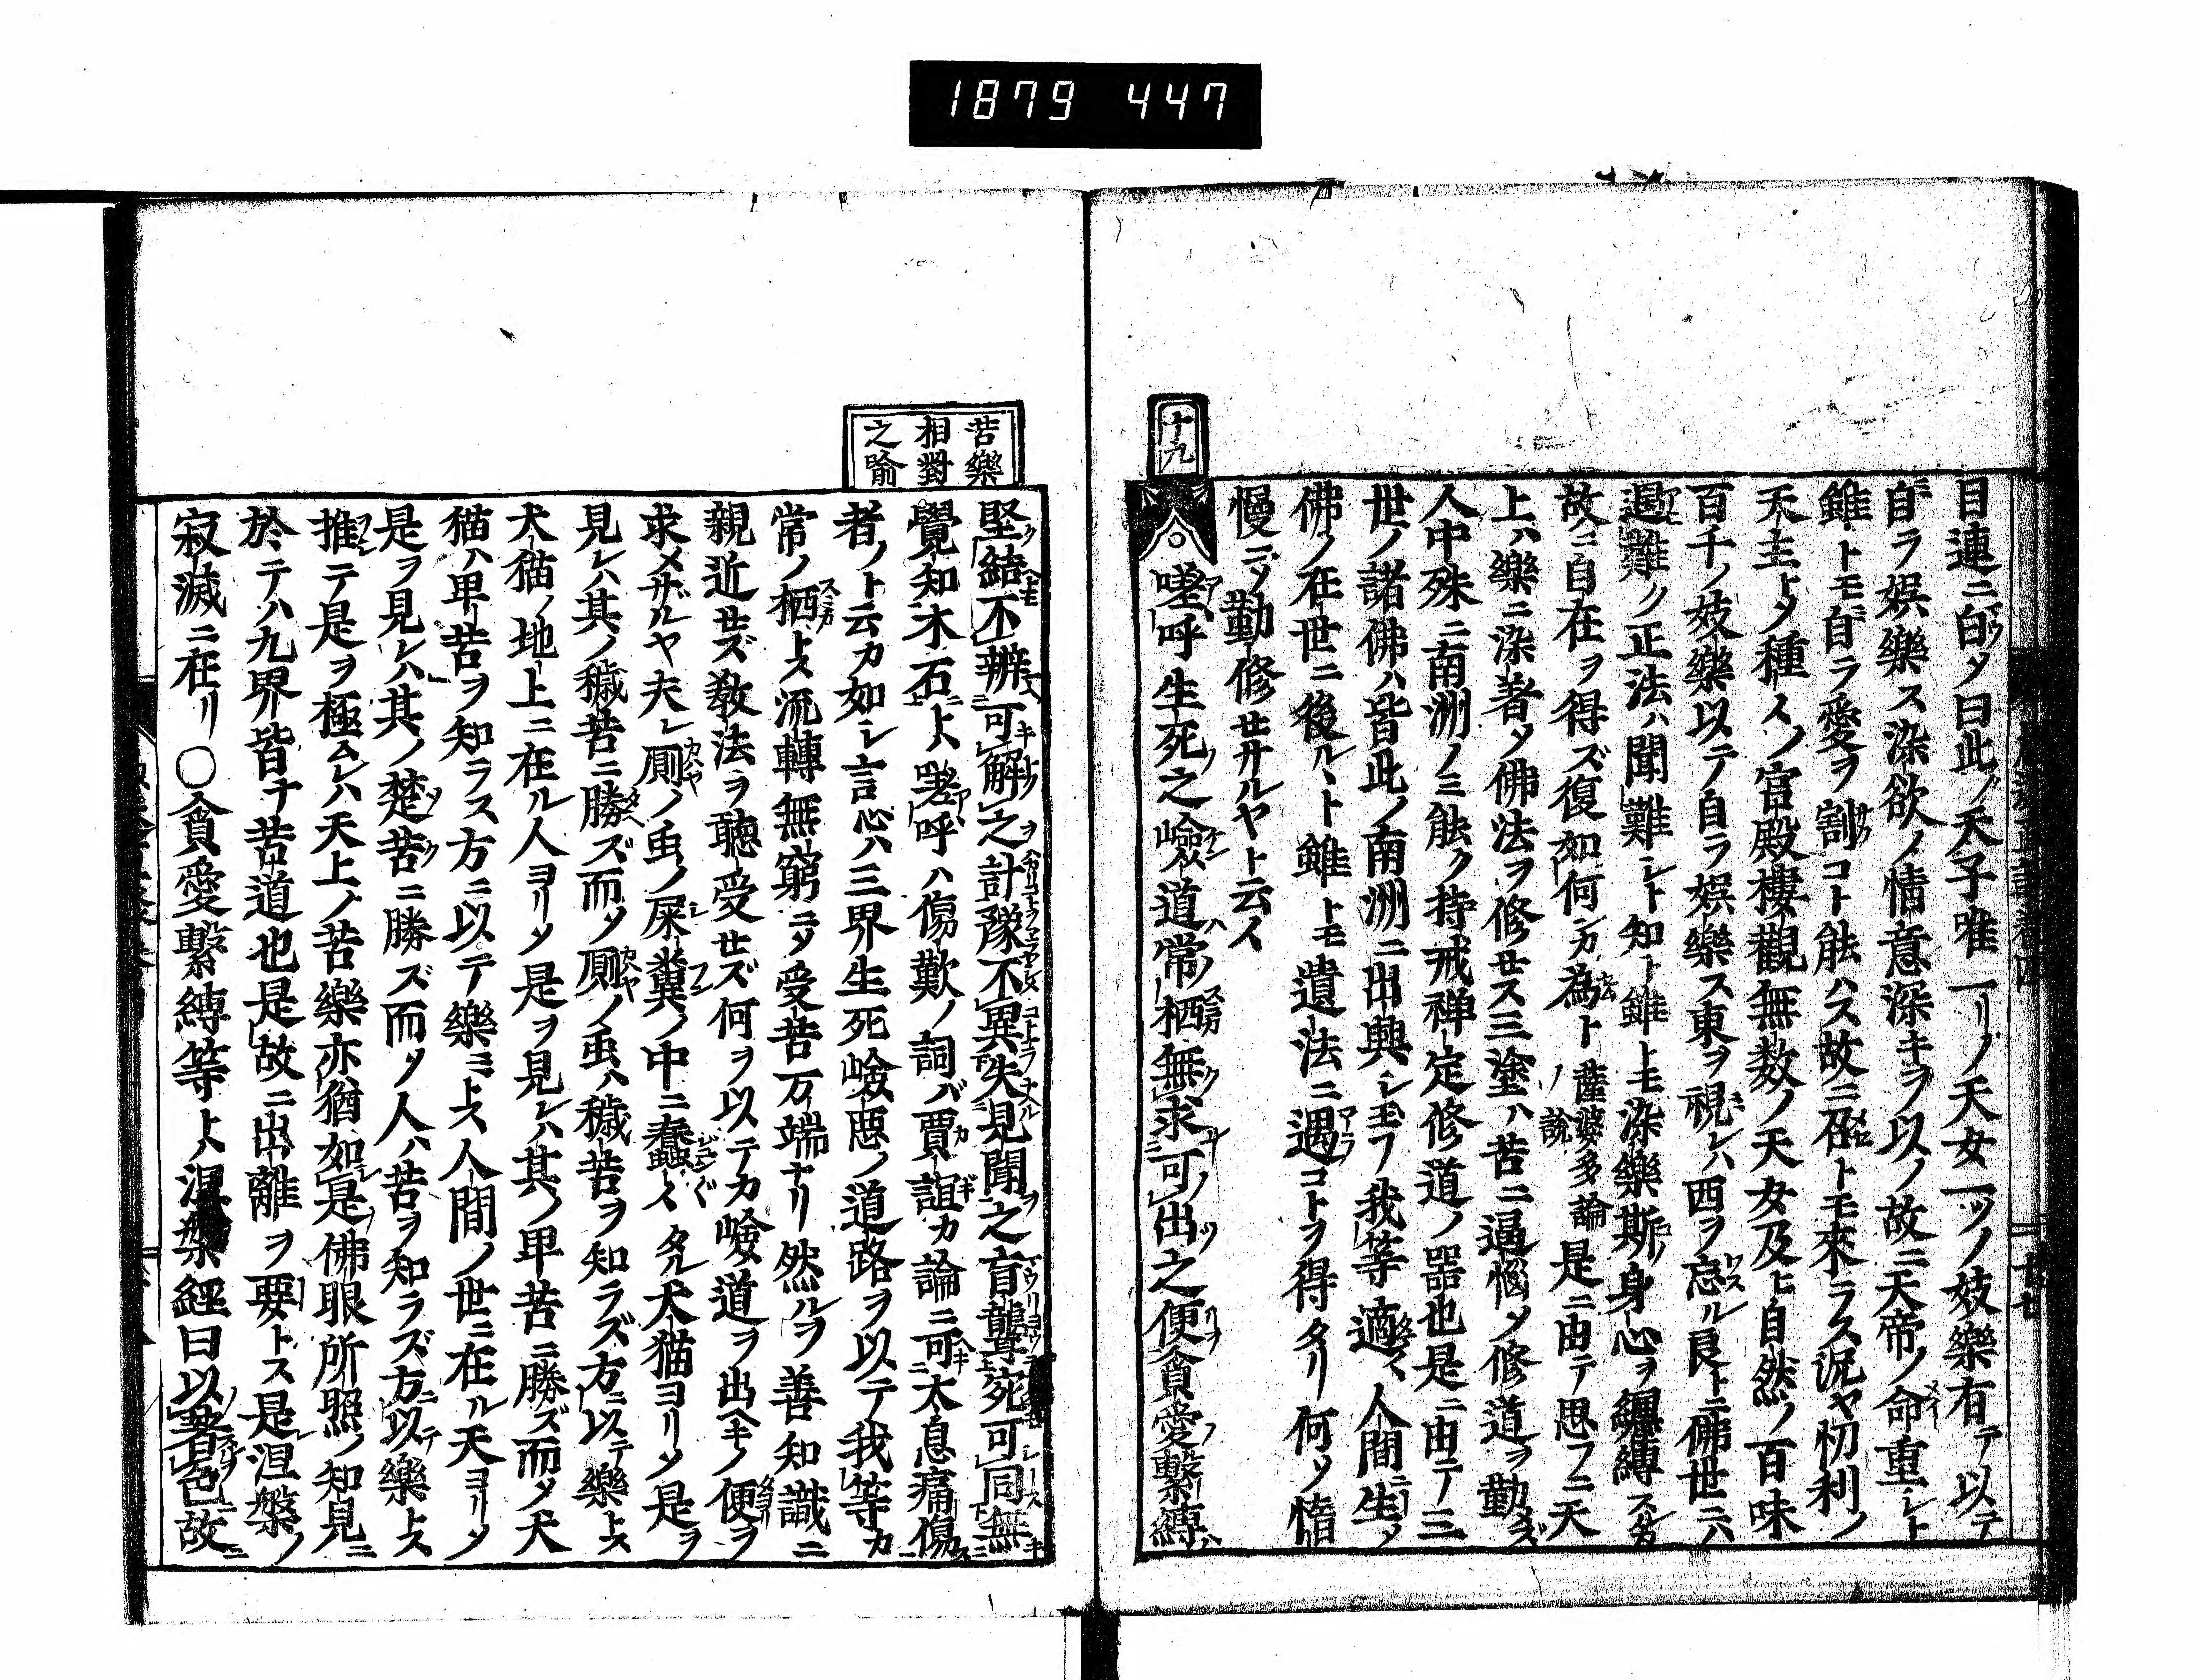 1879 447
目連ニ白ソタ曰此ノ天子唯一リノ天女一ツノ妓樂有テ以テ
自ラ娯樂ス染欲ノ情意深キヲ以ノ故ニ天帝ノ命重シト
雖トモ自ラ愛ヲ割コト能ハス故ニ召トモ來ラス況ヤ忉利ノ
天主トノ種々ノ宮殿樓觀無数ノ天女及ヒ自然ノ百味
百千ノ妓樂以テ自ラ娯樂ス東ヲ視レハ西ヲ忘ル良トニ佛世ニハ
遇難ク正法ハ聞難シト知ト雖トモ染樂斯ノ身心ヲ纒縛スルカ
故ニ自在ヲ得ズ復如何ンカ為ト 薩婆多論ノ説 是ニ由テ思フニ天
上ハ樂ニ染著ノ佛法ヲ修セス三塗ハ苦ニ逼惱ノ修道ヲ勤メズ
人中殊ニ南洲ノミ能ク持戒禅定修道ノ器也是ニ由テ三
世ノ諸佛ハ皆此ノ南洲ニ出興シモフ我等適々人間ニ生ノ
佛ノ在世ニ後ルト雖トモ遺法ニ遇コトヲ得タリ何ソ惰
慢ニソ勤修セサルヤト云々
十九
嗟呼生死ノ之嶮道ハ常ノ栖無ク求可ノ出ツ之便リヲ貪愛ノ繋縛ハ
苦樂
相對
之喩
堅結不辨可解之計豫不異失見聞之盲聾宛可同無
覺知木石トハ嗟呼ハ傷歎ノ詞バ賈誼カ論ニ可太息痛傷
者ノト云カ如シ言心ハ三界生死嶮悪ノ道路ヲ以テ我等カ
常ノ栖トス流轉無窮ニソ受苦万端ナリ然ルヲ善知識ニ
親近セズ教法ヲ聽受セズ何ヲ以テカ嶮道ヲ出ヘキノ便ヲ
求メサルヤ夫レ厠ノ虫ノ屎糞ノ中ニ蠢々タル犬猫ヨリソ是ヲ
見レハ其ノ穢苦ニ勝ズ而ノ厠ノ虫ハ穢苦ヲ知ラズ方ニ以テ樂トス
犬猫ノ地上ニ在ル人ヨリソ是ヲ見レハ其ノ卑苦ニ勝ズ而ノ犬
猫ハ卑苦ヲ知ラス方ニ以テ樂ミトス人間ノ世ニ在ル天ヨリソ
是ヲ見レハ其ノ楚苦ニ勝ズ而ノ人ハ苦ヲ知ラズ方ニ以テ樂トス
推テ是ヲ極ムレハ天上ノ苦樂亦猶如是佛眼所照ノ知見ニ
於テハ九界皆ナ苦道也是故ニ出離ヲ要トス是レ涅槃ノ
寂滅ニ在リ○貪愛繋縛等トハ涅槃經曰以著色故ニ